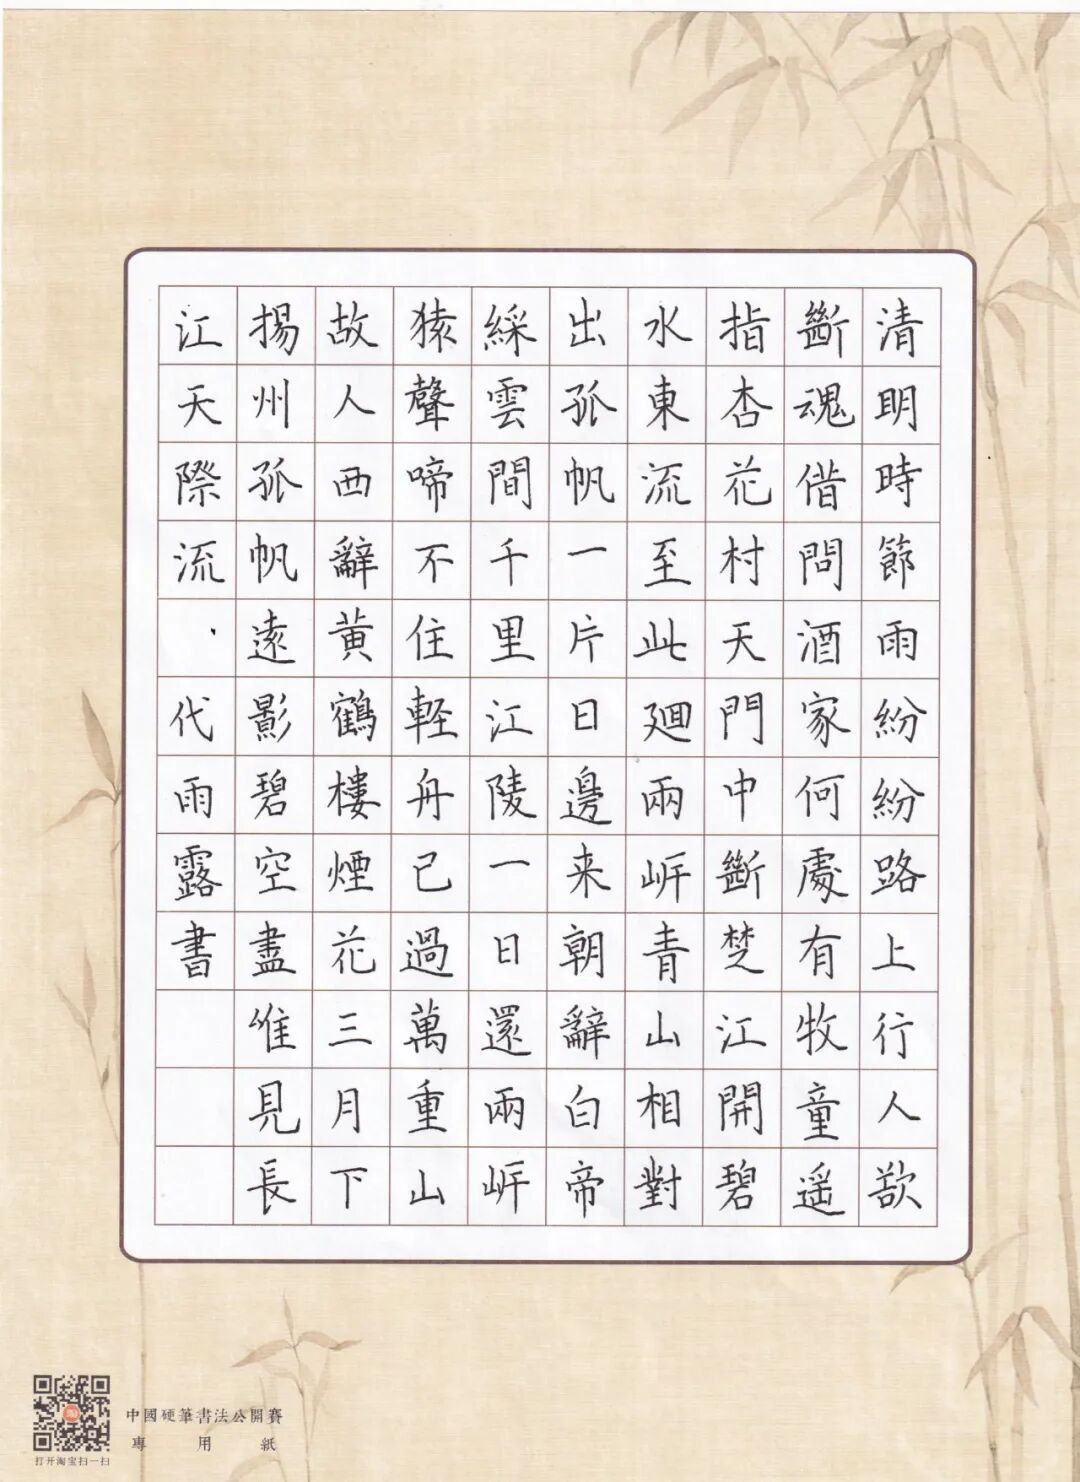 清明時節雨紛紛路上行人欲
斷魂借問酒家何處有牧童遥
指杏花村天門中斷楚江開碧
水東流至此廻兩岸青山相對
出孤帆一片日邊来朝辭白帝
綵雲間千里江陵一日還兩岸
猿聲啼不住軽舟已過萬重山
故人西辭黄鶴樓煙花三月下
揚州孤帆遠影碧空盡惟見長
江天際流、代雨露書
中國硬筆書法公開賽
專用紙
打开淘宝扫一扫